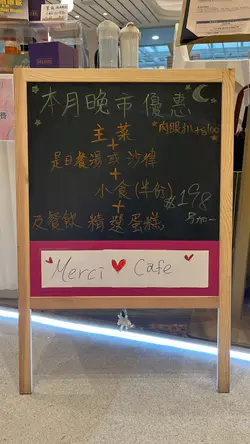 本月晚市優惠
主菜
+
是日餐湯或沙律
+
小食(半份)
$198
另加一
+
及餐飲 精選蛋糕
Merci Cafe